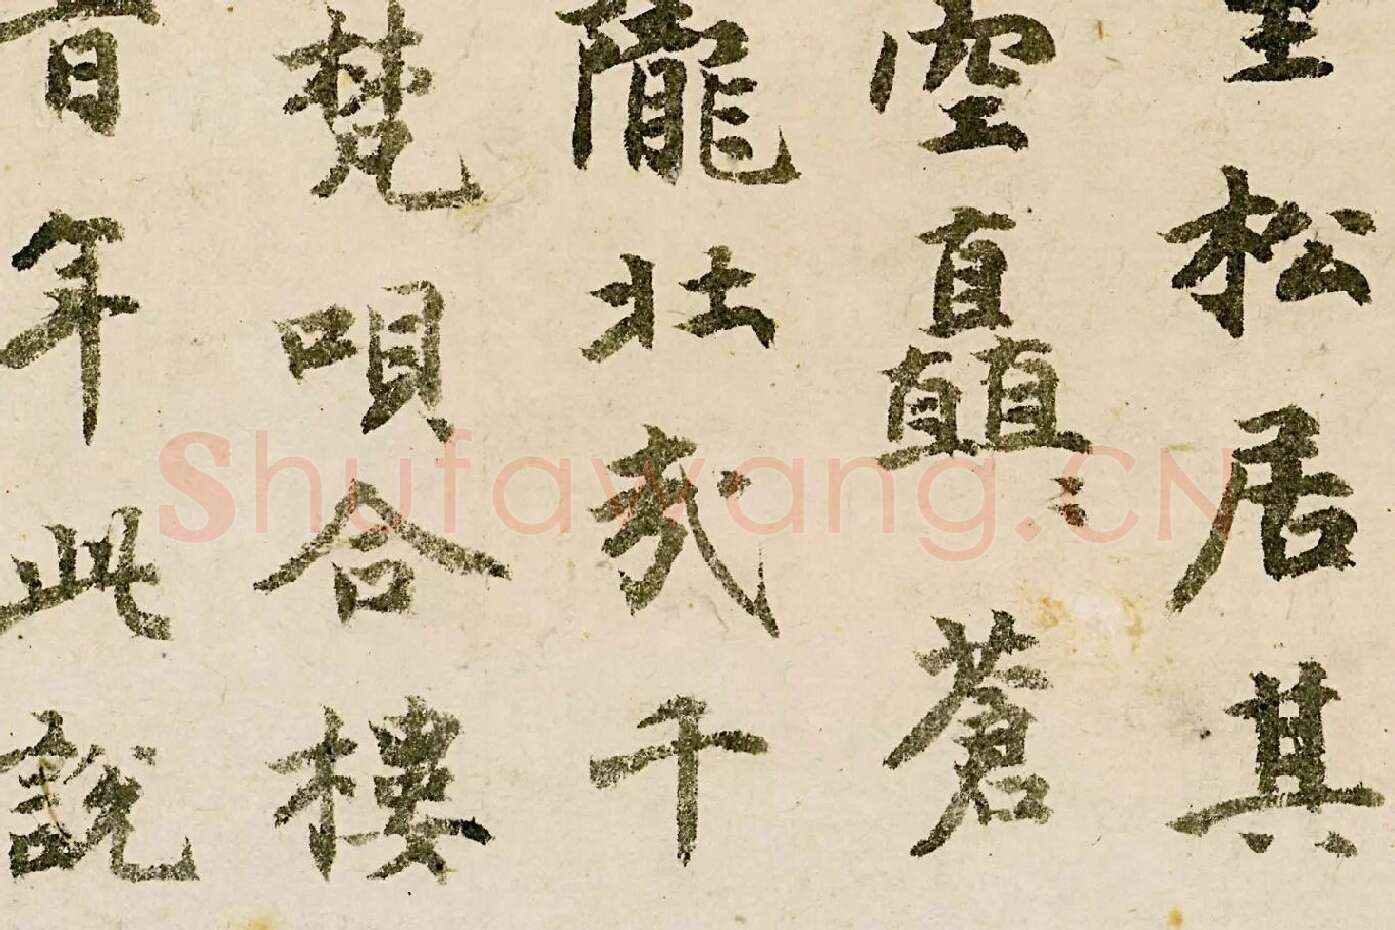 里松居其
空矗〻蒼
隴壯哉千
梵唄合樓
昔年此説
Shufawang.CN